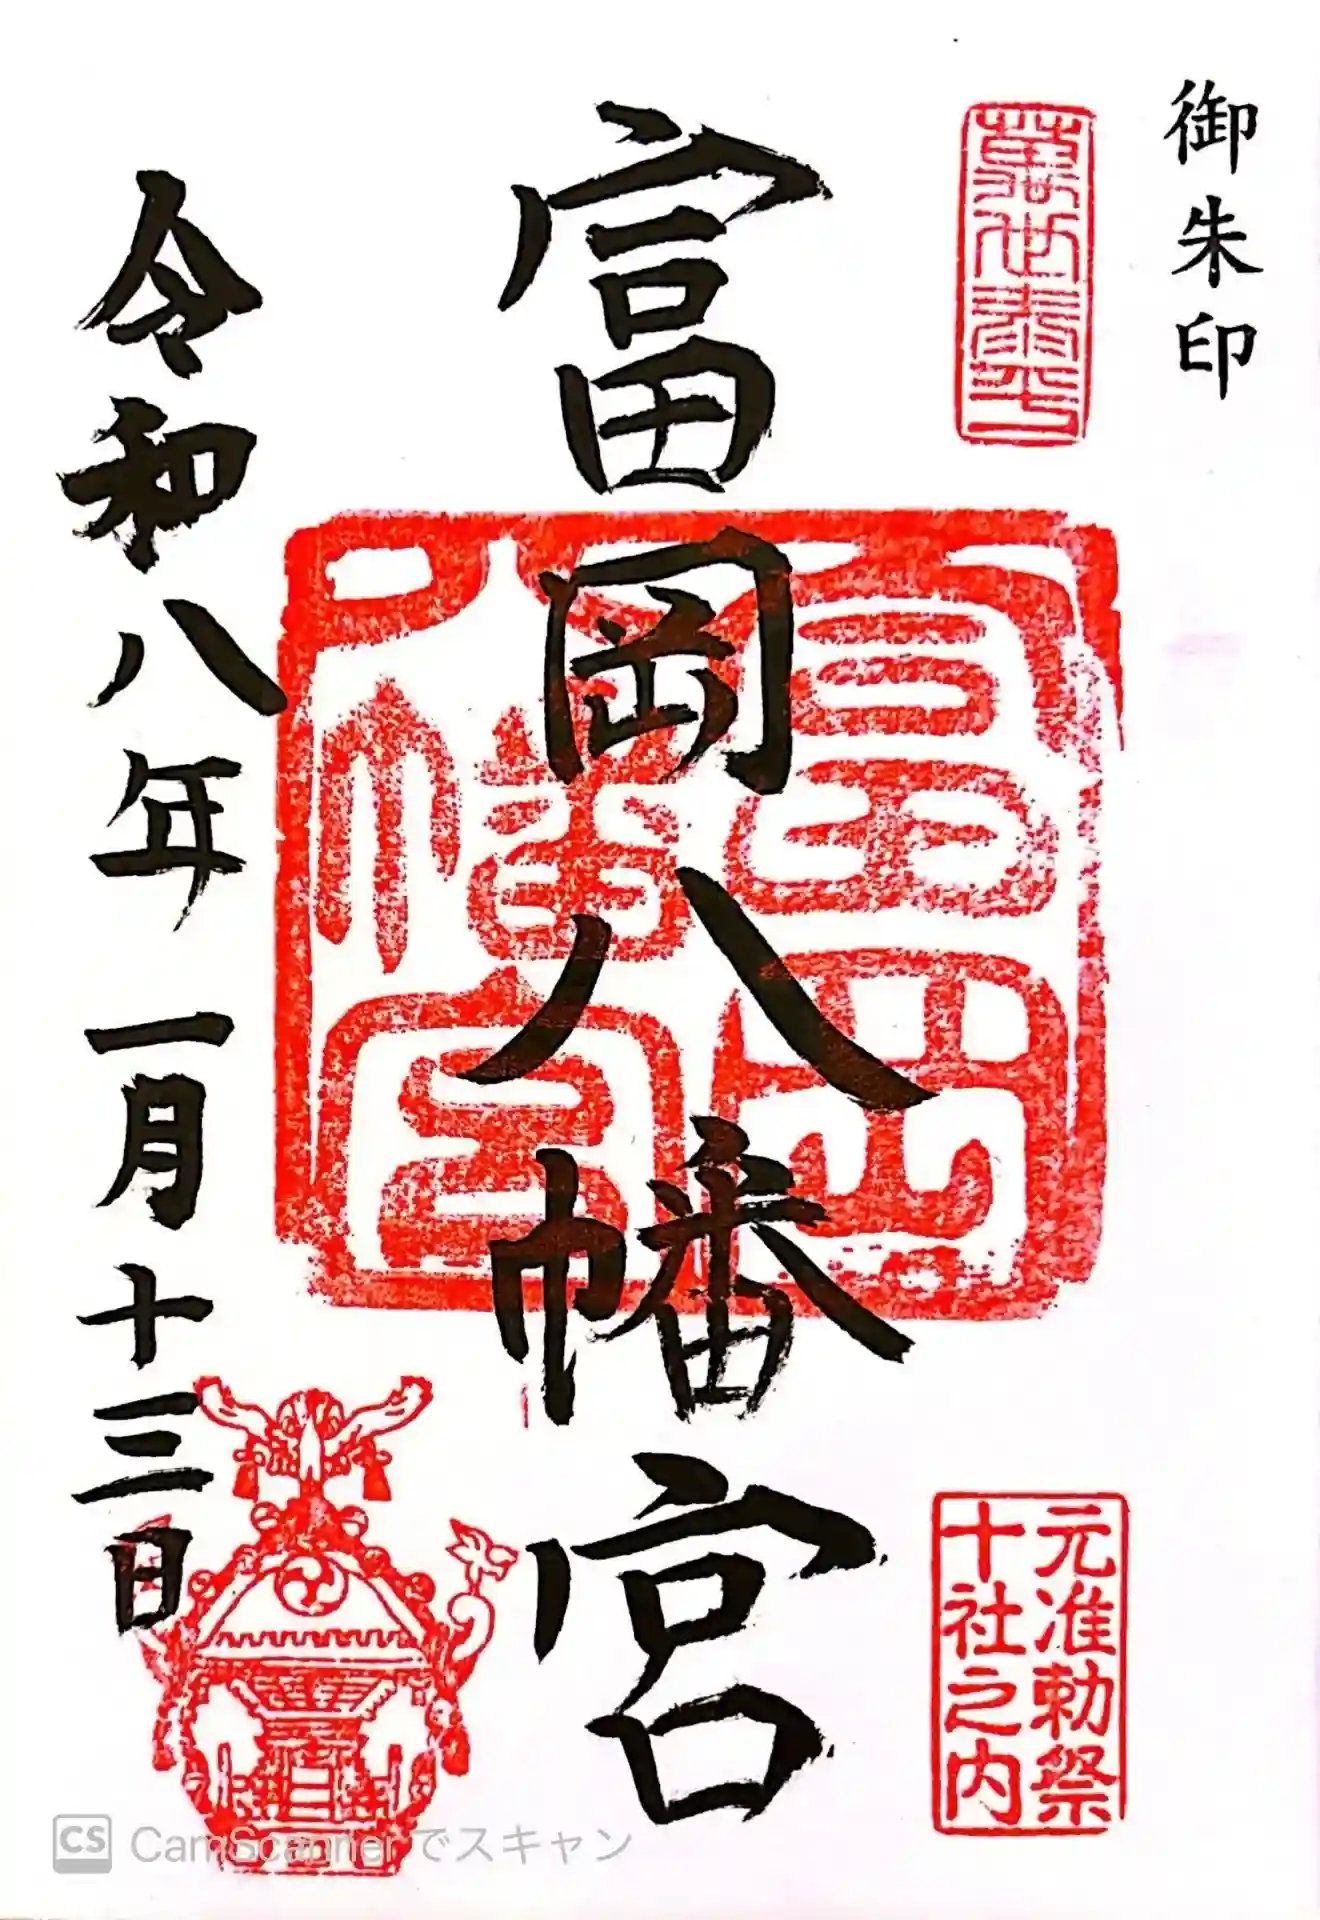 御朱印
萬世泰平
富岡八幡宮
富岡
八幡宮
元准勅祭
十社之内
令和八年一月十三日
CS CamScannerでスキャン